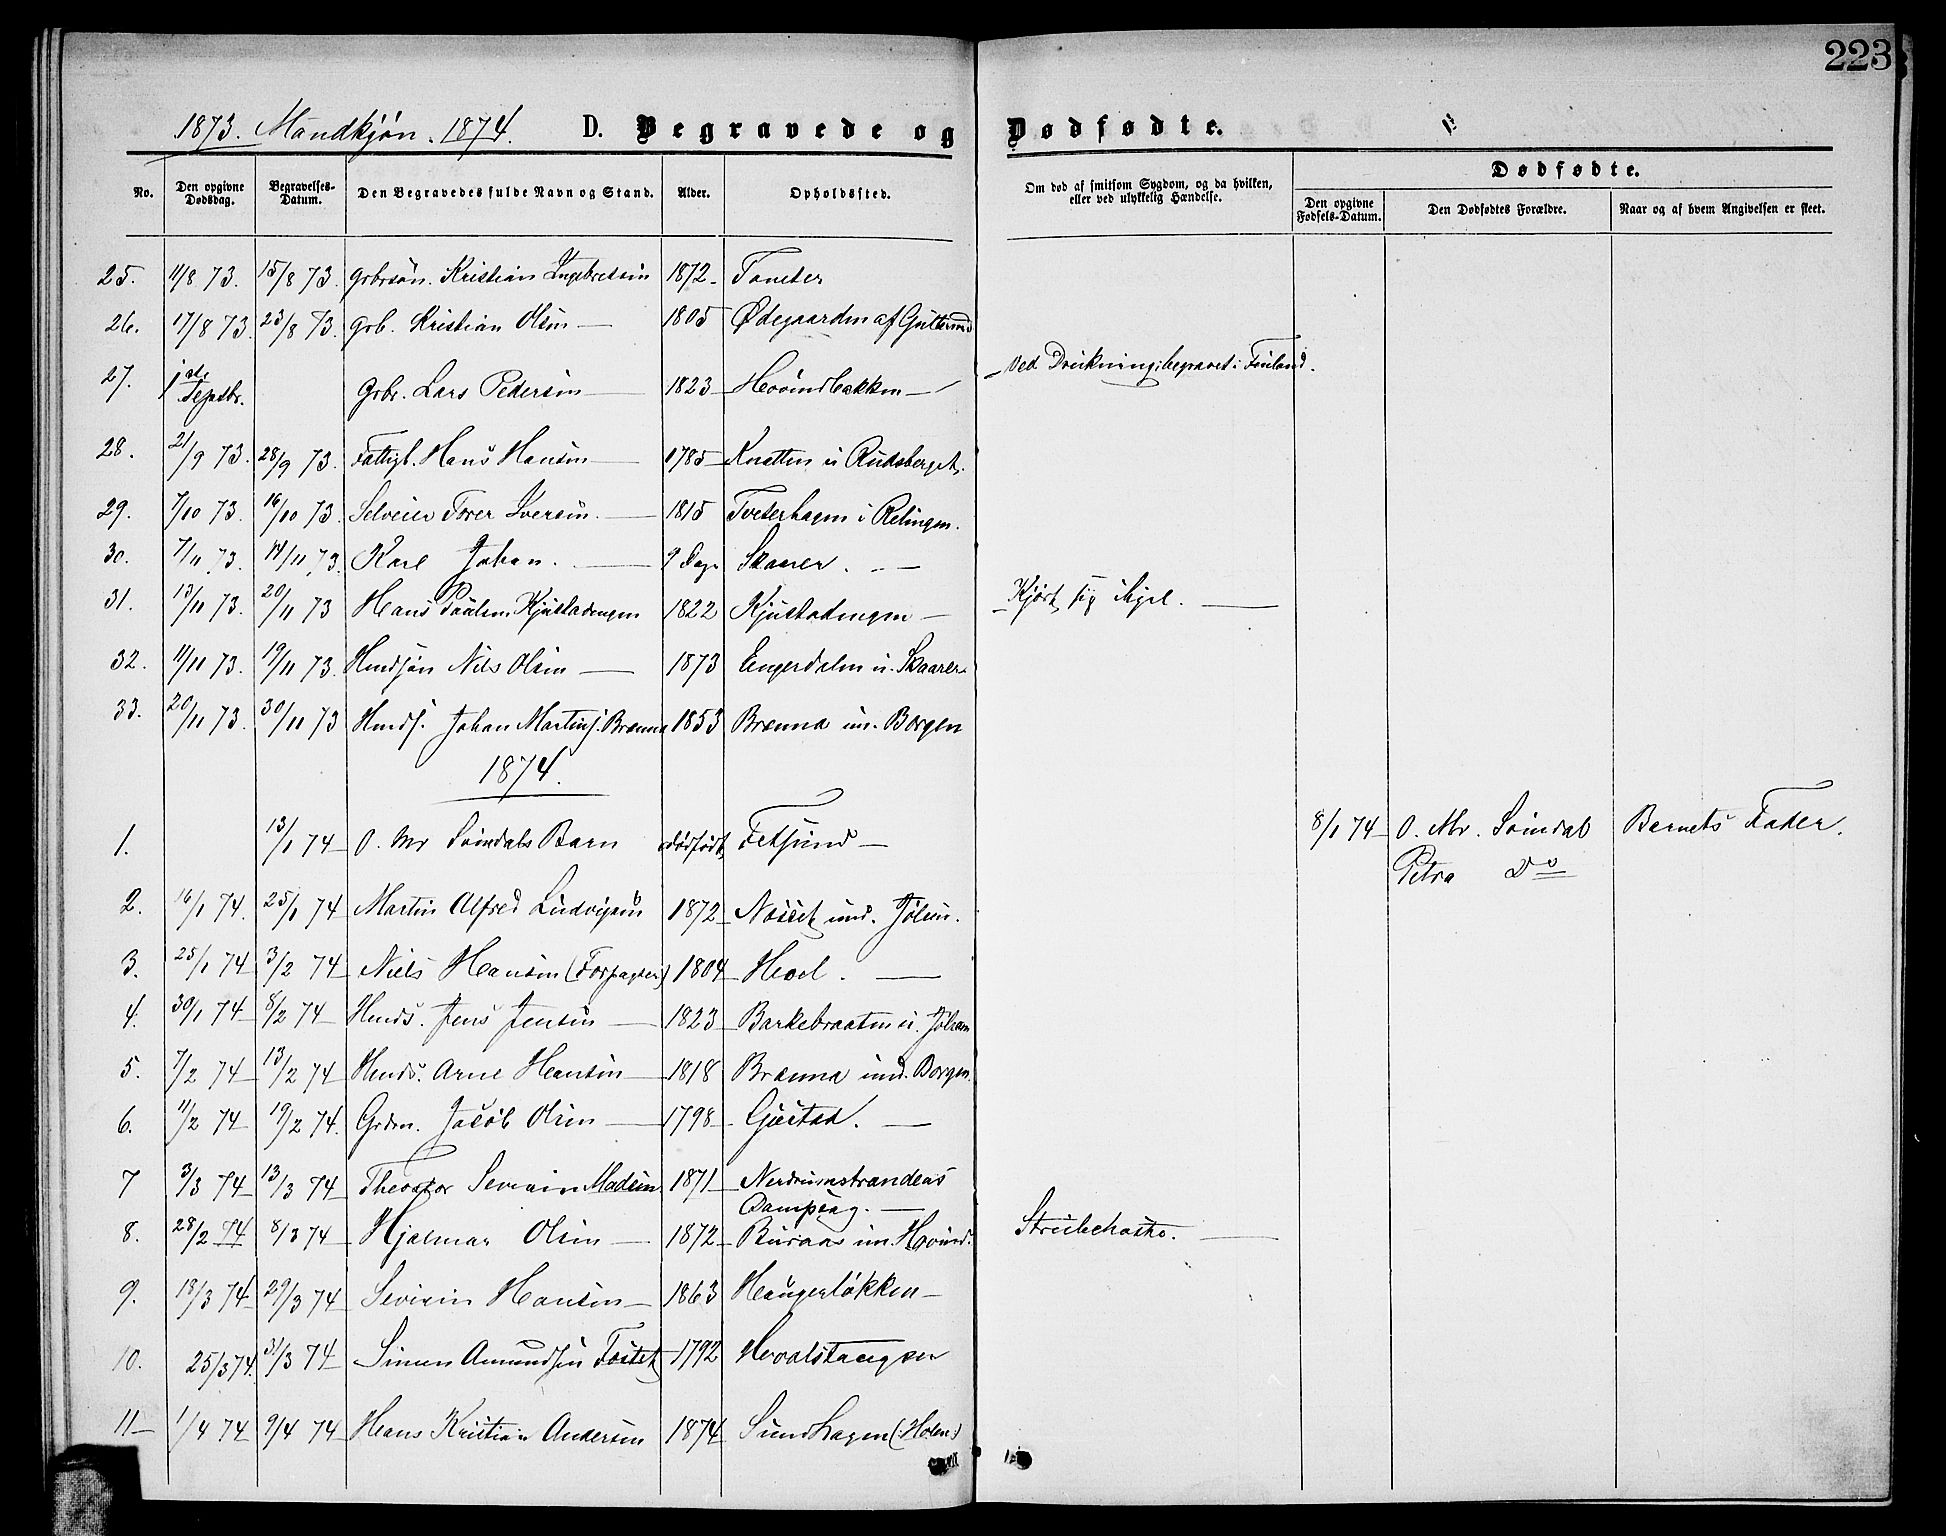 223
1873. Mandkjøn. 1874. D. Begravede og Dødfødte.
No. Den opgivne Dødsdag. Begravelses-Datum. Den Begravedes fulde Navn og Stand. Alder. Opholdssted. Om død af smitsom Sygdom, og da hvilken, eller ved ulykkelig Hændelse. Dødfødte.
Den opgivne Fødsels-Datum. Den Dødfødtes Forældre. Naar og af hvem Angivelsen er skeet.
25. 11/8 73. 15/8 73. Gbrsøn. Kristian Ingebretsen 1872 - Toneter
26. 17/8 73. 23/8 73. Grb. Kristian Olsen — 1805 Ødegaarden af Guttersrud
27. 1ste Septbr. Grbr. Lars Pedersen — 1823 — Hovindbakken — Ved Drukning; begravet i Finland.
28. 21/9 73. 28/9 73. Fattigl. Hans Hansen — 1785 — Knatten u Rudsberget.
29. 7/10 73. 16/10 73. Selveier Torer Iversen. — 1815 Tveterhagen i Relingen.
30. 7/11 73. 14/11 73. Karl Johan. — 9 Dage Skaarer. —
31. 13/11 73. 20/11 73 Hans Paulsen Kjustadengen 1822 Kjustadengen — Kjørt sig ihjel. —
32. 11/11 73. 19/11 73. Hmdsøn Nils Olsen — 1873 Engerdalen u. Skaarer
33. 20/11 73. 30/11 73 Hmds. Johan Martins. Brænna 1853 Brænna un. Borgen
1874.
1. 13/1 74 O. Mr Soindals Barn dødfødt Fetsund — 8/1 74 O. Mr. Soindal Barnets Fader.
Petra Do
2. 16/1 74. 25/1 74 Martin Alfred Ludvigsen 1872 — und. Jølsen.
3. 25/1 74 3/2 74 Niels Hansen (Forpagter) 1804 Heoel. —
4. 30/1 74 8/2 74 Hmds. Jens Jensen — 1823 — Barkebraaten u. Jølsen
5. 7/2 74 13/2 74 Hmds. Arne Hansen — 1818 Brænna und. Borgen.
6. 11/2 74 19/2 74. Grdm. Jacob Olsen — 1798 - Gjæstad. —
7 3/3 74 13/3 74 Theodor Severin Madsen 1871 — Nerdrumstrandens
Dampsag. —
8. 28/2 74 8/3 74 Hjalmar Olsen — 1872 — Buraas un. Hovind. Strubehoste. —
9. 18/3 74 29/3 74 Severin Hansen — 1863 Haugerløkken —
10. 25/3 74. 31/3 74 Simen Amundsen Tostet 1792 Hvalstangen
11 — 1/4 74 9/4 74 Hans Kristian Andersen 1874 Sundhagen (Holen)